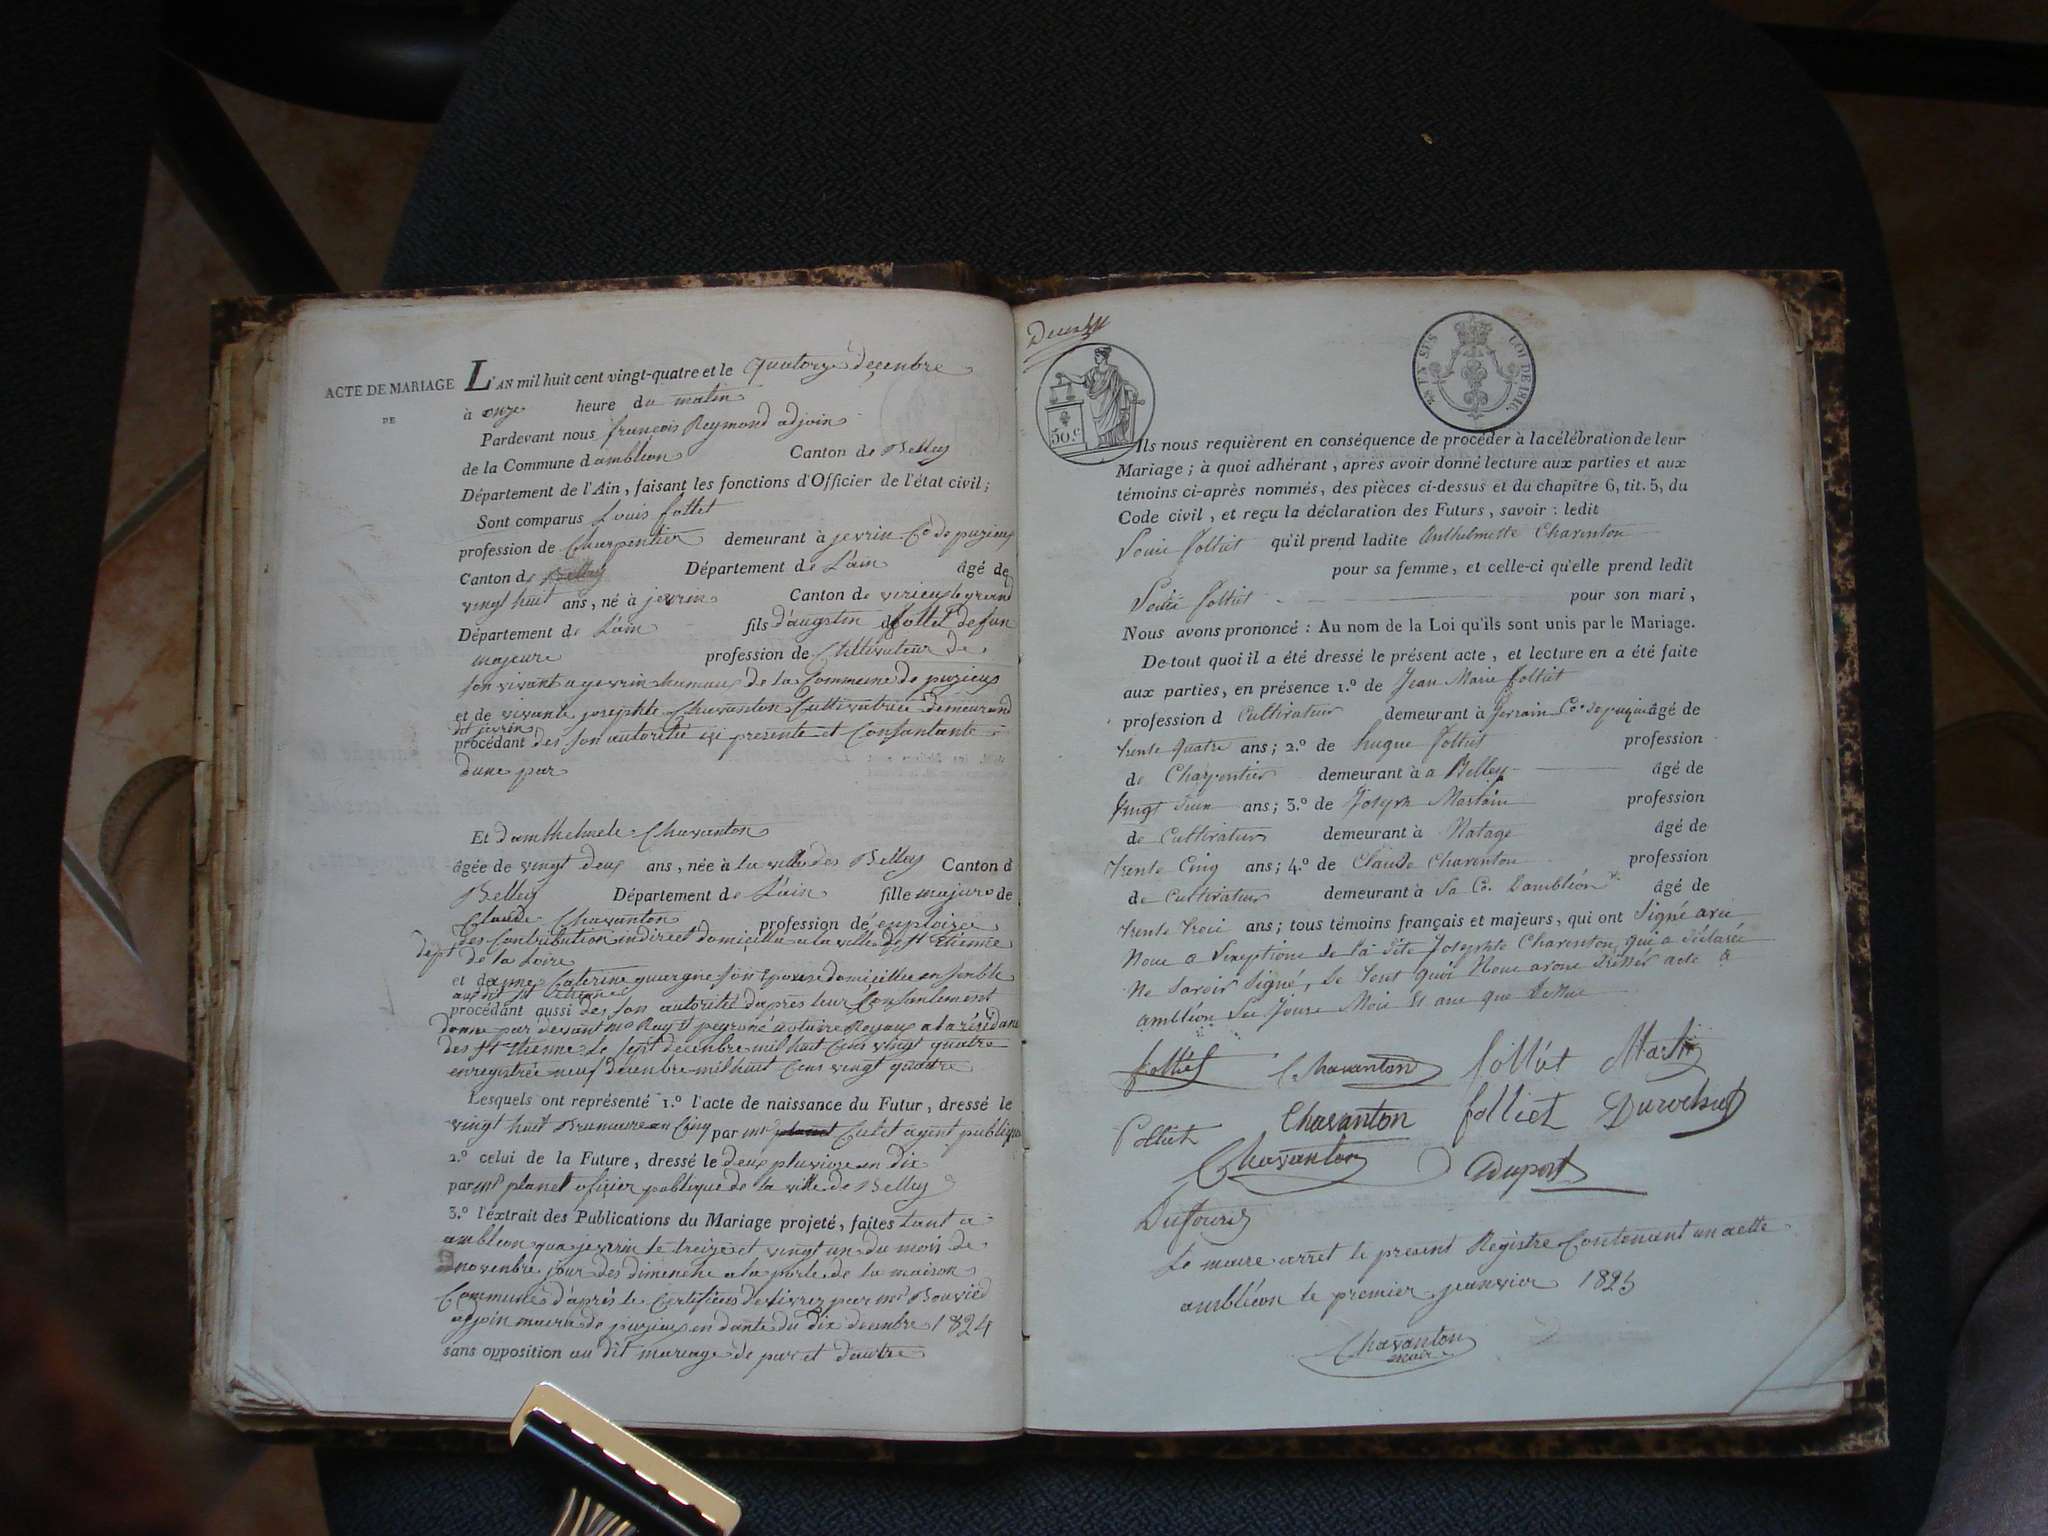 ACTE DE MARIAGE
DE
L'AN mil huit cent vingt-quatre et le quatorze decenbre
à onze heure du matin
Pardevant nous francois Reymond adjoin
de la Commune d'ambleon Canton de Belley
Département de l'Ain, faisant les fonctions d'Officier de l'état civil;
Sont comparus Louis follet
profession de Charpentier demeurant à jevrin Co de puzieux
Canton de Belley Département de L'ain âgé de
vingt huit ans, né à jevrin Canton de virieux le grand
Département de L'ain fils d'augstin follet defun
majeure profession de Cultivateur de
son vivant a jevrin hamaux de la Commune de puzieux
et de vivante josephte Chavanton Cultivatrice demeurand
dit jevrin
procédant des son autorité ici presente et Consantante
dune par
Et d'amthelmele Chavanton
âgée de vingt deux ans, née à la ville des Belley Canton d
Belley Département de L'ain fille majure de
Claude Chavanton profession de enploiée
des Contribution indirect domicillié a la ville de st Etienne
dept de la Loire
et dame Caterine guargne son Epouse domicillié ensenble
au dit st etienne
procédant aussi des son autorité d'après leur Consentement
donné par devant me Ray st peyroné notaire Royaux a la résidans
des st thienne le sept decenbre mil huit Cens vingt quatre
enregistrée neuf decenbre mil huit Cens vingt quatre
Lesquels ont représenté 1.o l'acte de naissance du Futur, dressé le
vingt huit Brumaire an Cinq par mr planet Culet agent publique
2.o celui de la Future, dressé le deux pluviose an dix
par mr planet oficier publique de la ville de Belley
3.o l'extrait des Publications du Mariage projeté, faites tant a
ambleon qua jevrin le treize et vingt un du mois de
novenbre jour des dimenche a la porte de la maison
Commune d'après le Certificas delivrez par mr Bouvied
adjoin mairie de puzieux en dante du dix decenbre 1824
sans opposition au dit mariage de par et d'autre
50 c.
LOI DE 1816
Ils nous requièrent en conséquence de procéder à la célébration de leur
Mariage; à quoi adhérant, après avoir donné lecture aux parties et aux
témoins ci-après nommés, des pièces ci-dessus et du chapitre 6, tit. 5, du
Code civil, et reçu la déclaration des Futurs, savoir: ledit
Louis folliet qu'il prend ladite Anthelmette Chavanton
pour sa femme, et celle-ci qu'elle prend ledit
Louis folliet pour son mari,
Nous avons prononcé: Au nom de la Loi qu'ils sont unis par le Mariage.
De tout quoi il a été dressé le présent acte, et lecture en a été faite
aux parties, en présence 1.o de Jean Marie folliet
profession d Cultivateur demeurant à Jevrain Co de puzieu âgé de
trente quatre ans; 2.o de hugue folliet profession
de Charpentier demeurant à a Belley âgé de
vingt ans; 3.o de Joseph Martain profession
de Cultivateur demeurant à Natage âgé de
trente Cinq ans; 4.o de Claude Chavanton profession
de Cultivateur demeurant à La Co. d'ambléon âgé de
trente trois ans; tous témoins français et majeurs, qui ont Signé avec
Nous a L'exeptione de la dite Josephte Chavanton, qui a déclarée
Ne Savoir Signé, de tout quoi Nous avons Dressér acte a
ambléon Les Jours Mois Et ans que Dessus
folliet Chavanton folliet Martin
folliet Chavanton folliet Durochat
Chavanton Duport
Dufour
Le maire arret le present Registre Contenant un actte
ambléon le premier jeanvier 1825
Chavanton
maire